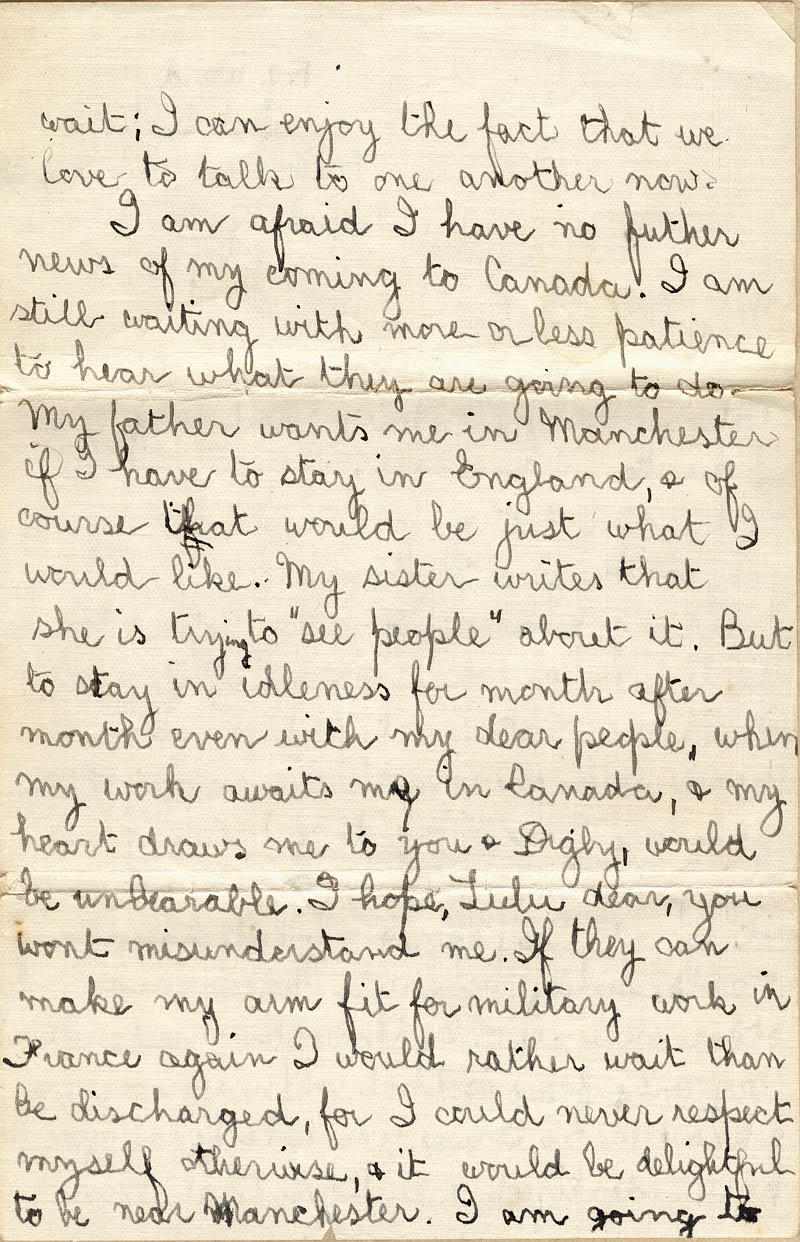 wait; I can enjoy the fact that we
love to talk to one another now.
I am afraid I have no futher
news of my coming to Canada. I am
still waiting with more or less patience
to hear what they are going to do.
My father wants me in Manchester
if I have to stay in England, & of
course that would be just what I
would like. My sister writes that
she is trying to "see people" about it. But
to stay in idleness for month after
month even with my dear people, when
my work awaits me in Canada, & my
heart draws me to you & Digby, would
be unbearable. I hope, Lulu dear, you
wont misunderstand me. If they can
make my arm fit for military work in
France again I would rather wait than
be discharged, for I could never respect
myself otherwise, & it would be delightful
to be near Manchester. I am going to